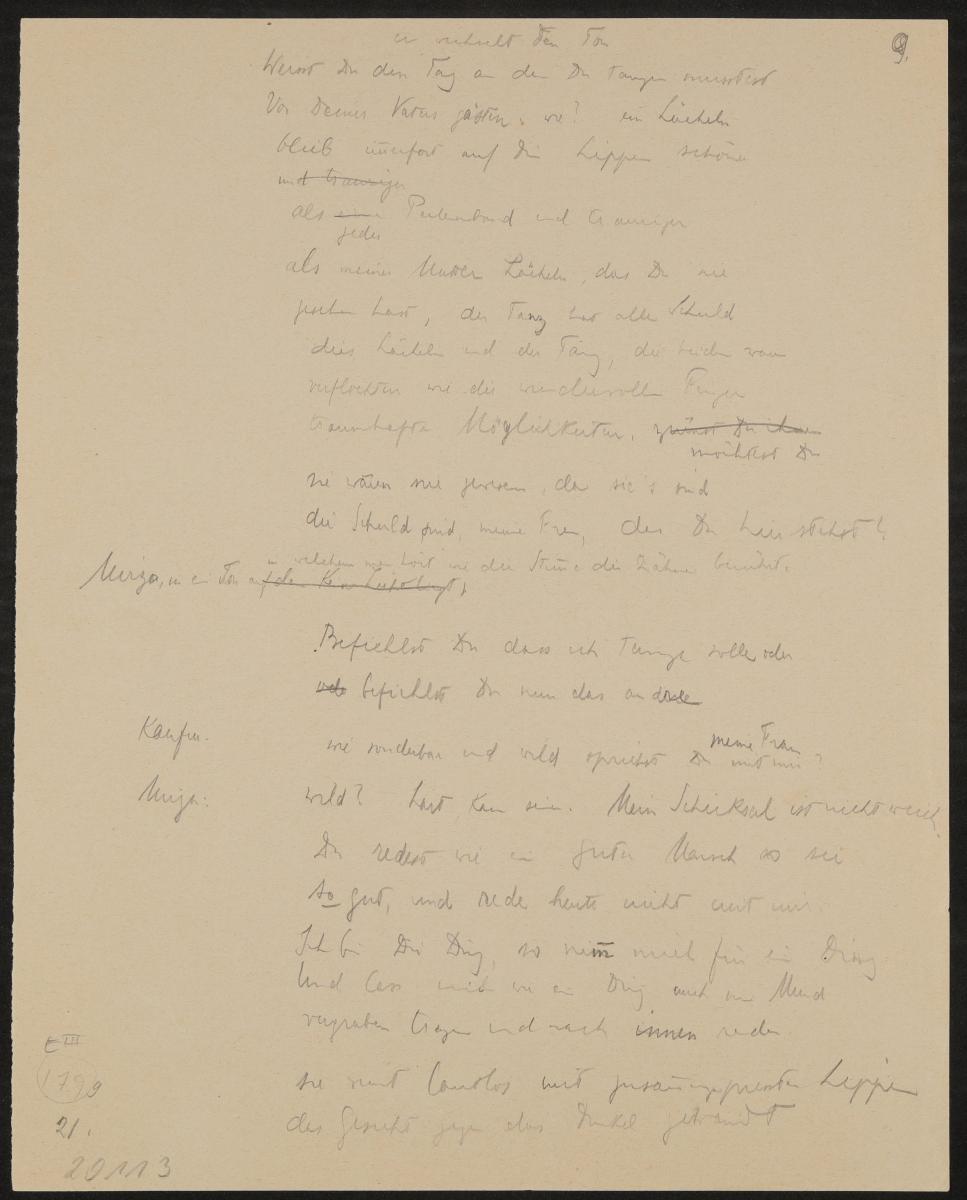 er wechselt den Ton
9.
Weisst Du den Tag an dem Du tanzen musstest
Vor Deines Vaters gästen. wie? ein Lächeln
blieb immerfort auf den Lippen schöner
und trauriger
als eine Perlenband und trauriger
jedes
als meiner Mutter Lächeln, das Du nie
gesehen hast, der Tanz hat alle Schuld
dies Lächeln und der Tanz, die beiden waren
verflochten wie die wundervollen Finger
traumhafter Möglichkeiten. Du ihnen
möchtest Du
sie wären nie gewesen, da sie's sind
die Schuld sind, meine Frau, dass Du hier stehst!
in welchem man hört wie die Stimme die Zähne berührt.
Mirza, in ein Ton auf den
Befiehlst Du dass ich tanzen solle oder
oder befiehlst Du nun das andere
Kaufm.
wie sonderbar und wild sprichst Du mit mir?
meine Frau
Mirza:
wild? hart kann sein. Mein Schicksal ist nicht weich.
Du redest wie ein guter Mensch so sei
so gut, und rede heute nicht mit mir.
Ich bin Dein Ding, so nimm mich für ein Ding
Und lass mich wie ein Ding auch den Mund
vergraben tragen und nach innen reden
sie weint lautlos mit zusammengepressten Lippen
das Gesicht gegen das Dunkel gewandt
E III
179 9
21.
20113